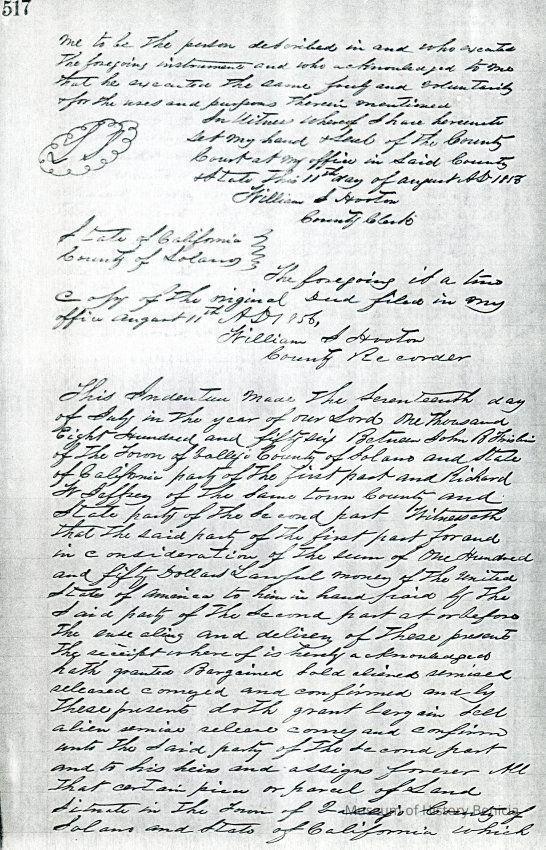 517
me to be the person described in and who executed
the foregoing instrument and who acknowledged to me
that he executed the same freely and voluntarily
& for the uses and purposes therein mentioned
In Witness whereof I have hereunto
set my hand & Seal of the County
Court at my office in said County
State this 11th day of august AD 1856
William S Hooton
County Clerk
State of California
County of Solano
The foregoing is a true
copy of the original Deed filed in my
office august 11th AD 1856,
William S Hooton
County Recorder
This Indenture made the Seventeenth day
of July in the year of our Lord One Thousand
Eight Hundred and fifty six Between John R
of the Town of Vallejo County of Solano and State
of California party of the first part and Richard
W Jeffrey of the same town County and
State party of the Second part Witnesseth
that the said party of the first part for and
in consideration of the sum of One Hundred
and fifty Dollars Lawful money of the United
States of America to him in hand paid by the
said party of the Second part at or before
the ensealing and delivery of These present
The receipt where of is hereby acknowledged
hath granted Bargained Sold aliened remised
released conveyed and confirmed and by
These presents doth grant bargain sell
alien remise release convey and confirm
unto the said party of the Second part
and to his heirs and assigns forever All
that certain piece or parcel of Land
Situate in the Town of Vallejo County of
Solano and State of California which
Museum of History Benicia